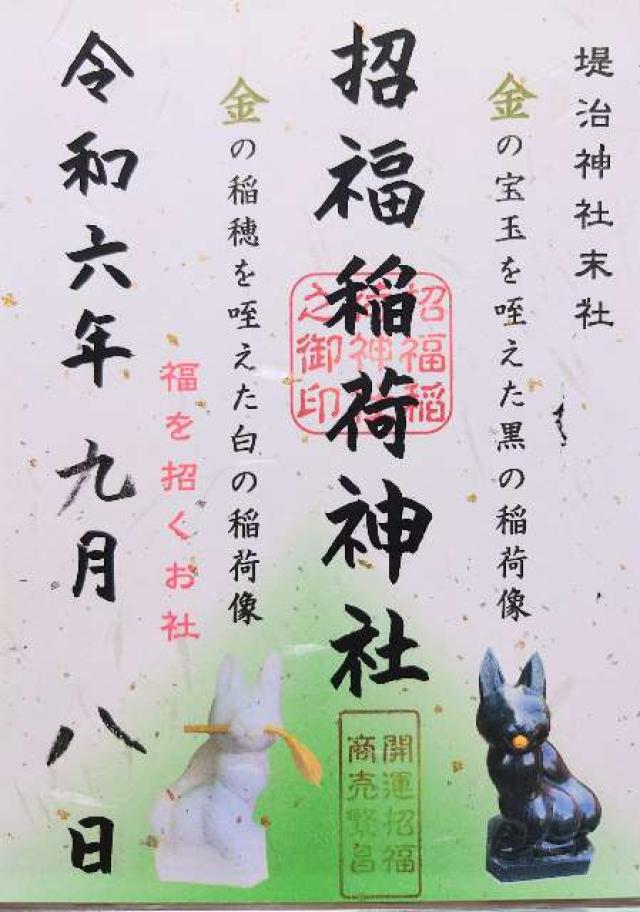 堤治神社末社
金の宝玉を咥えた黒の稲荷像
招福稲荷神社
招福稲
荷神社
之御印
開運招福
商売繁昌
金の稲穂を咥えた白の稲荷像
福を招くお社
令和六年 九月 八日